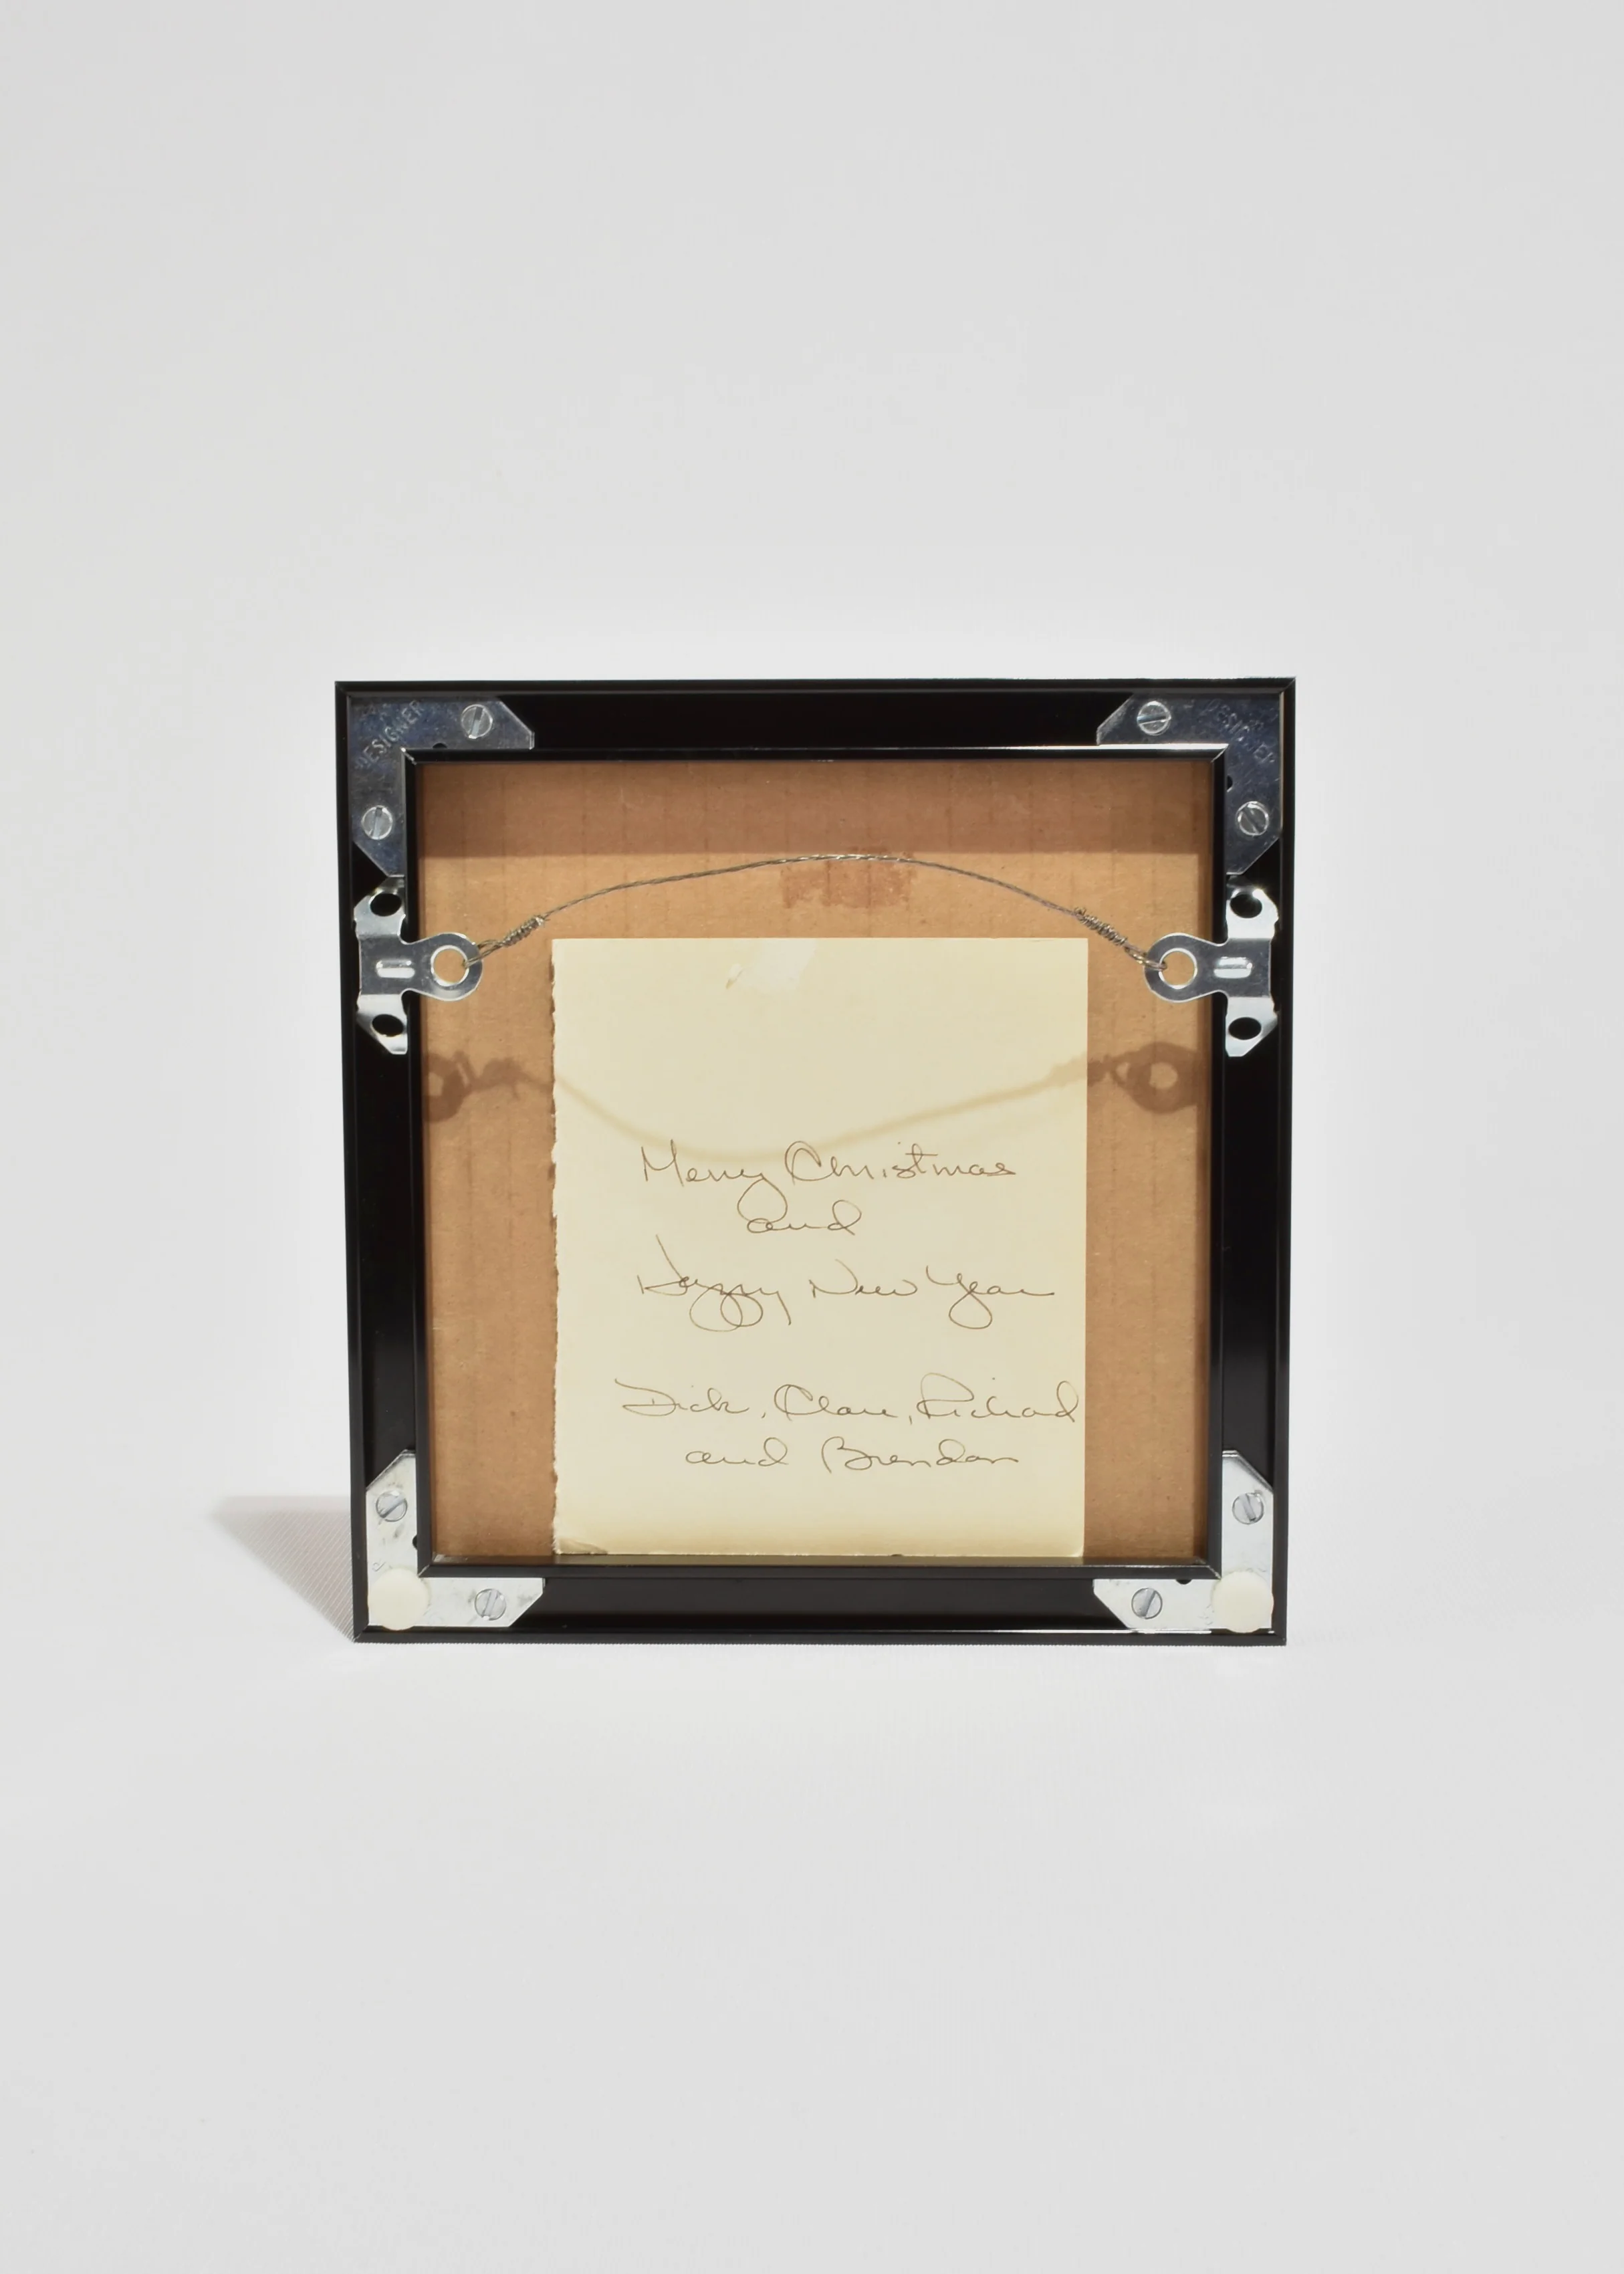 DESIGNER
DESIGNER
Merry Christmas
and
Happy New Year
Dick, Clare, Richard
and Brendan